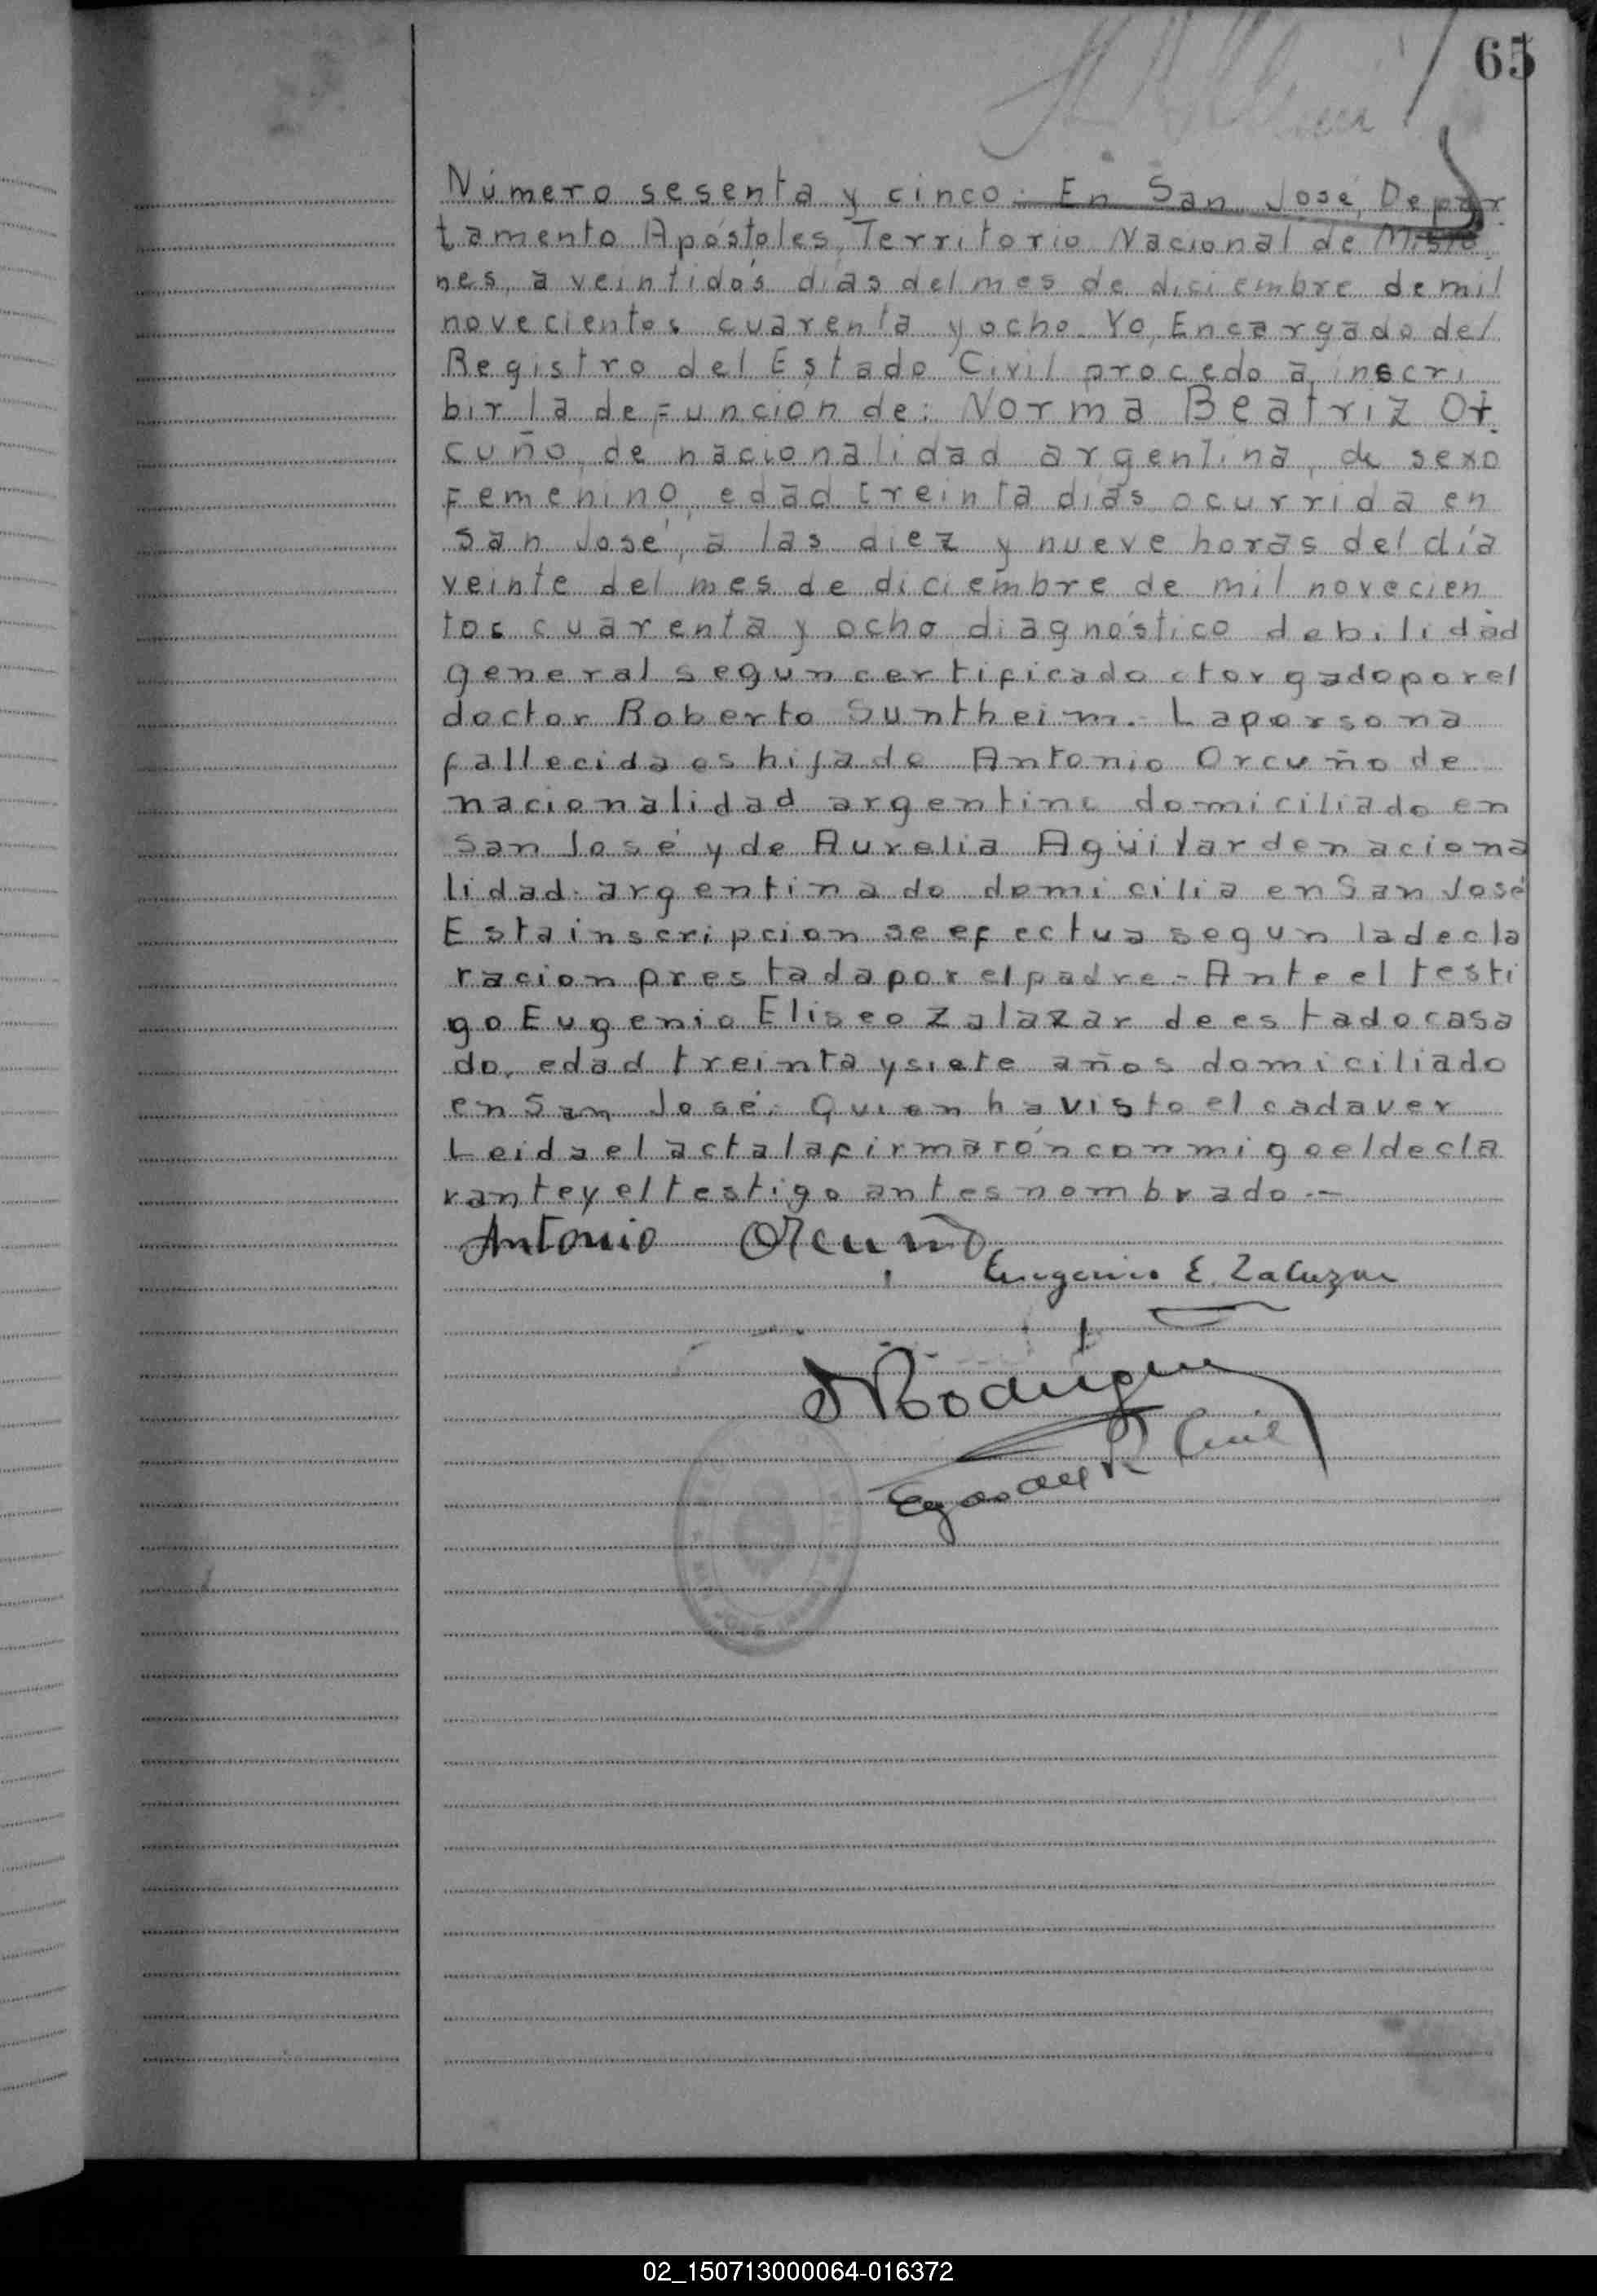 65
Número sesenta y cinco. En San José, Depar
tamento Apóstoles, Territorio Nacional de Misio
nes, a veintidós dias del mes de diciembre de mil
novecientos cuarenta y ocho. Yo, Encargado del
Registro del Estado Civil procedo a inscri
bir la defuncion de: Norma Beatriz Or
cuño, de nacionalidad argentina, de sexo
femenino, edad treinta dias ocurrida en
San José, a las diez y nueve horas del día
veinte del mes de diciembre de mil novecien
tos cuarenta y ocho diagnóstico debilidad
general segun certificado otorgado por el
doctor Roberto Suntheim. La persona
fallecida es hija de Antonio Orcuño de
nacionalidad argentino domiciliado en
San José y de Aurelia Agüilar de naciona
lidad argentina de domicilia en San José
Esta inscripcion se efectua segun la decla
racion prestada por el padre. - Ante el testi
go Eugenio Eliseo Zalazar de estado casa
do, edad treinta y siete años domiciliado
en San José. Quien ha visto el cadaver
Leida el acta la firmarón conmigo el decla
rante y el testigo antes nombrado. -
Antonio Orcuño
Eugenio E. Zalazar
Rodriguez
R Civil
02_150713000064-016372